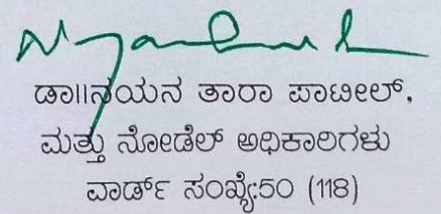 ಡಾ||ನಯನ ತಾರಾ ಪಾಟೀಲ್,
ಮತ್ತು ನೋಡೆಲ್ ಅಧಿಕಾರಿಗಳು
ವಾರ್ಡ್ ಸಂಖ್ಯೆ:50 (118)